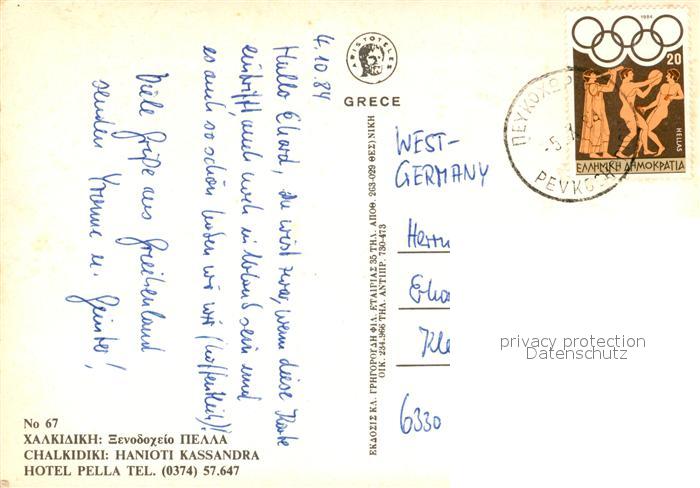 4.10.84
Hallo Ehard, du weist zwar, wenn diese Karte
eintrifft, auch noch in Urlaub sein und
es auch so schön haben wie wir (hoffentlich)!
Viele Grüße aus Griechenland
senden Yvonne u. Günter!
ARISTOTELES
GRECE
ΕΚΔΟΣΙΣ ΚΛ. ΓΡΗΓΟΡΟΥΔΗ ΦΙΛ. ΕΤΑΙΡΙΑΣ 35 ΤΗΛ. ΑΠΟΘ. 263-029 ΘΕΣ)ΝΙΚΗ
ΟΙΚ. 234.966 ΤΗΛ. ΑΝΤΙΠΡ. 730-473
1984
20
HELLAS
ΕΛΛΗΝΙΚΗ ΔΗΜΟΚΡΑΤΙΑ
ΠΕΥΚΟΧΩΡ
WEST-
GERMANY
Herrn
Kle
6330
privacy protection
Datenschutz
No 67
ΧΑΛΚΙΔΙΚΗ: Ξενοδοχείο ΠΕΛΛΑ
CHALKIDIKI: HANIOTI KASSANDRA
HOTEL PELLA TEL. (0374) 57.647